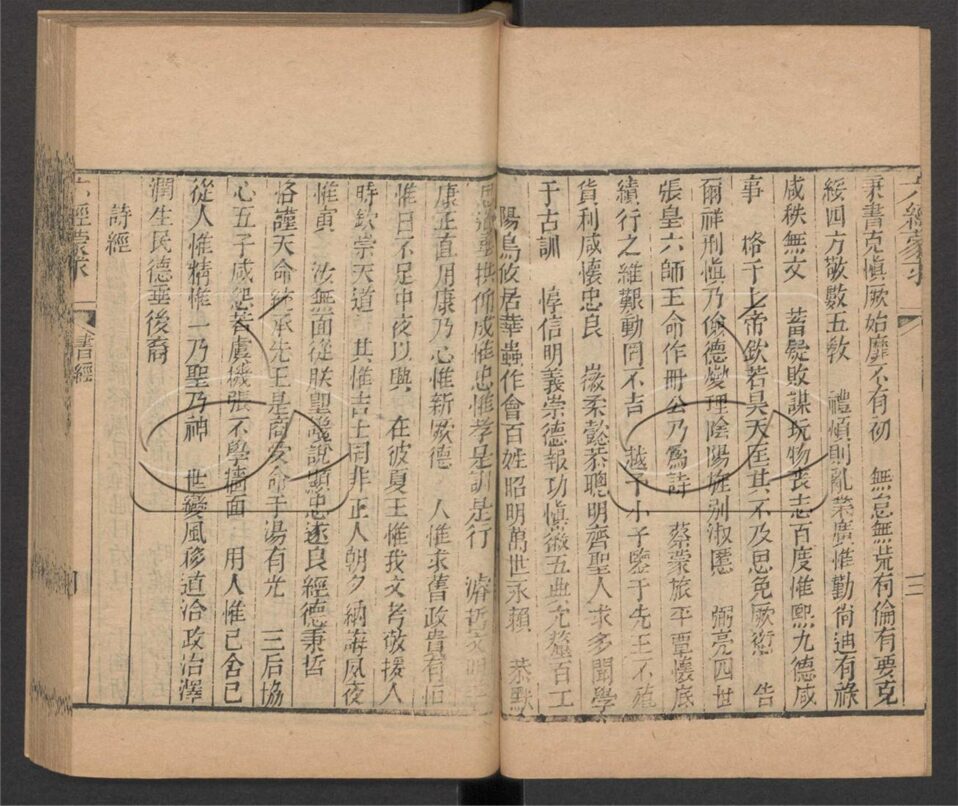 六經蒙求
三
秉書克愼厥始靡不有初　無怠無荒有倫有要克
綏四方敬敷五敎　禮煩則亂業廣惟勤尙迪有祿
咸秩無文　蓄疑敗謀玩物喪志百度惟熙九德咸
事　格于上帝欽若昊天匡其不及思免厥愆　告
爾祥刑愼乃儉德爕理陰陽旌别淑慝　弼亮四世
張皇六師王命作冊公乃爲詩　蔡蒙旅平覃懷底
績行之維艱動罔不吉　越予小子鑒于先王不殖
貨利咸懷忠良　徽柔懿恭聰明齊聖人求多聞學
于古訓　惇信明義崇德報功愼徽五典允釐百工
陽鳥攸居華蟲作會百姓昭明萬世永賴　恭默
思道垂拱仰成惟忠惟孝是訓是行　濬哲文明
康正直用康乃心惟新厥德　人惟求舊政貴有恒
惟日不足中夜以興　在彼夏王惟我文考敬援人
時欽宗天道　其惟吉士罔非正人朝夕納誨夙夜
惟寅　汝無面從朕堲讒說顯忠遂良經德秉哲
恪謹天命統承先王是商受命于湯有光　三后協
心五子咸怨若虞機張不學牆面　用人惟己舍己
從人惟精惟一乃聖乃神　世變風移道洽政治澤
潤生民德垂後裔
詩經
六經蒙求
書經
四